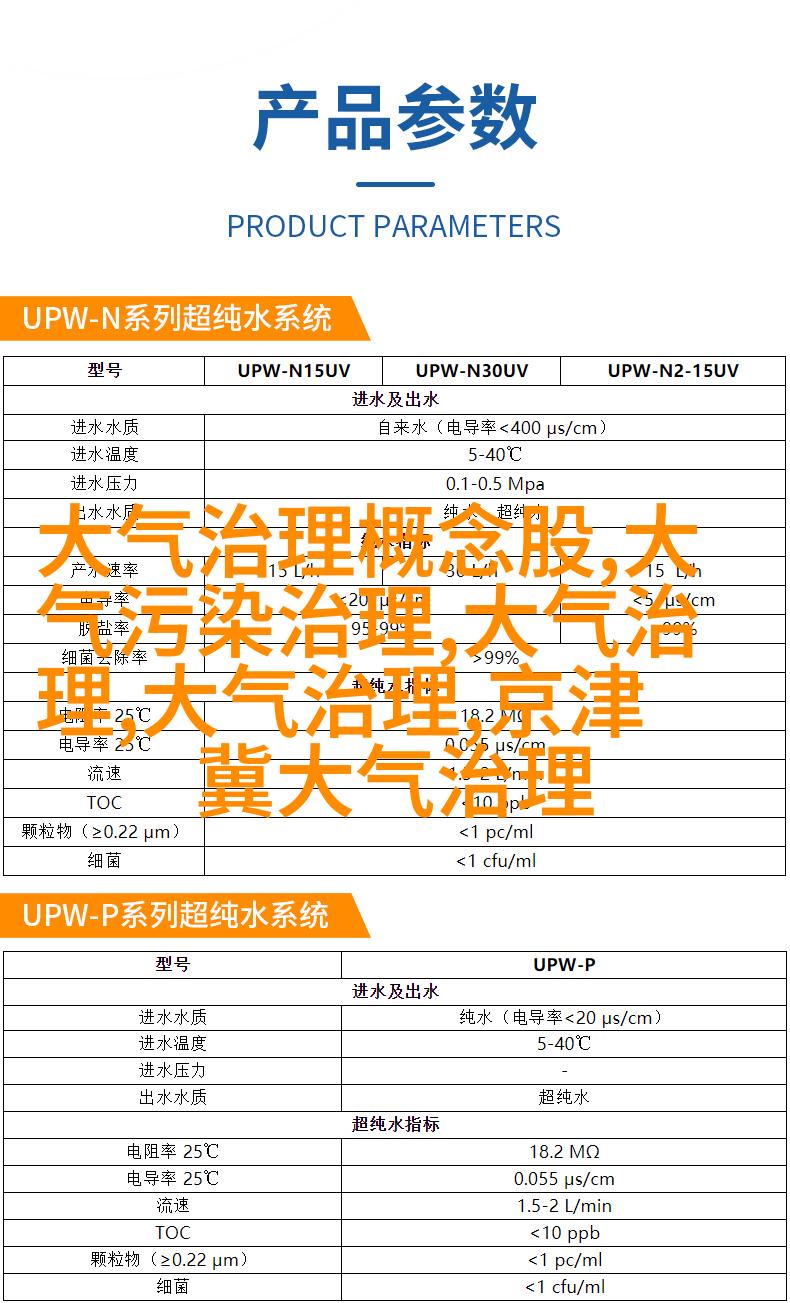 产品参数
PRODUCT PARAMETERS
UPW-N系列超纯水系统
型号 UPW-N15UV UPW-N30UV UPW-N2-15UV
进水及出水
进水水质 自来水（电导率<400 μs/cm）
进水温度 5-40℃
进水压力 0.1-0.5 Mpa
出水水质 纯水、超纯水
大气治理概念股,大
气污染治理,大气治
理,大气治理,京津
冀大气治理
产水速率 15 L/h 30 L/h 15 L/h
电导率 <20 μs/cm <5 μs/cm
脱盐率 95-99% 99%
细菌去除率 >99%
超纯水指标
电阻率 25℃ 18.2 MΩ
电导率 25℃ 0.055 μs/cm
流速 1.5-2 L/min
TOC <10 ppb
颗粒物（≥0.22 μm） <1 pc/ml
细菌 <1 cfu/ml
UPW-P系列超纯水系统
型号 UPW-P
进水及出水
进水水质 纯水（电导率<20 μs/cm）
进水温度 5-40℃
进水压力 -
出水水质 超纯水
超纯水指标
电阻率 25℃ 18.2 MΩ
电导率 25℃ 0.055 μs/cm
流速 1.5-2 L/min
TOC <10 ppb
颗粒物（≥0.22 μm） <1 pc/ml
细菌 <1 cfu/ml